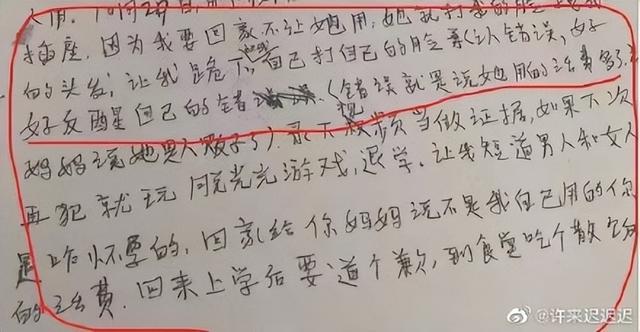 插座,因为我要回家不让她用,她就打我的脸
的头发,让我跪下,自己打自己的脸承认错误,好
好反醒自己的错误.(错误就是说她用的话费多,还
妈妈说她是人贩子了).录下视频当做证据,如果下次
再犯就玩脱光光游戏,退学.让我知道男人和女人
是咋怀孕的,回家给你妈妈说不是我自己用的你
的话费.回来上学后要道个歉,到食堂吃个散伙
@许来迟迟迟